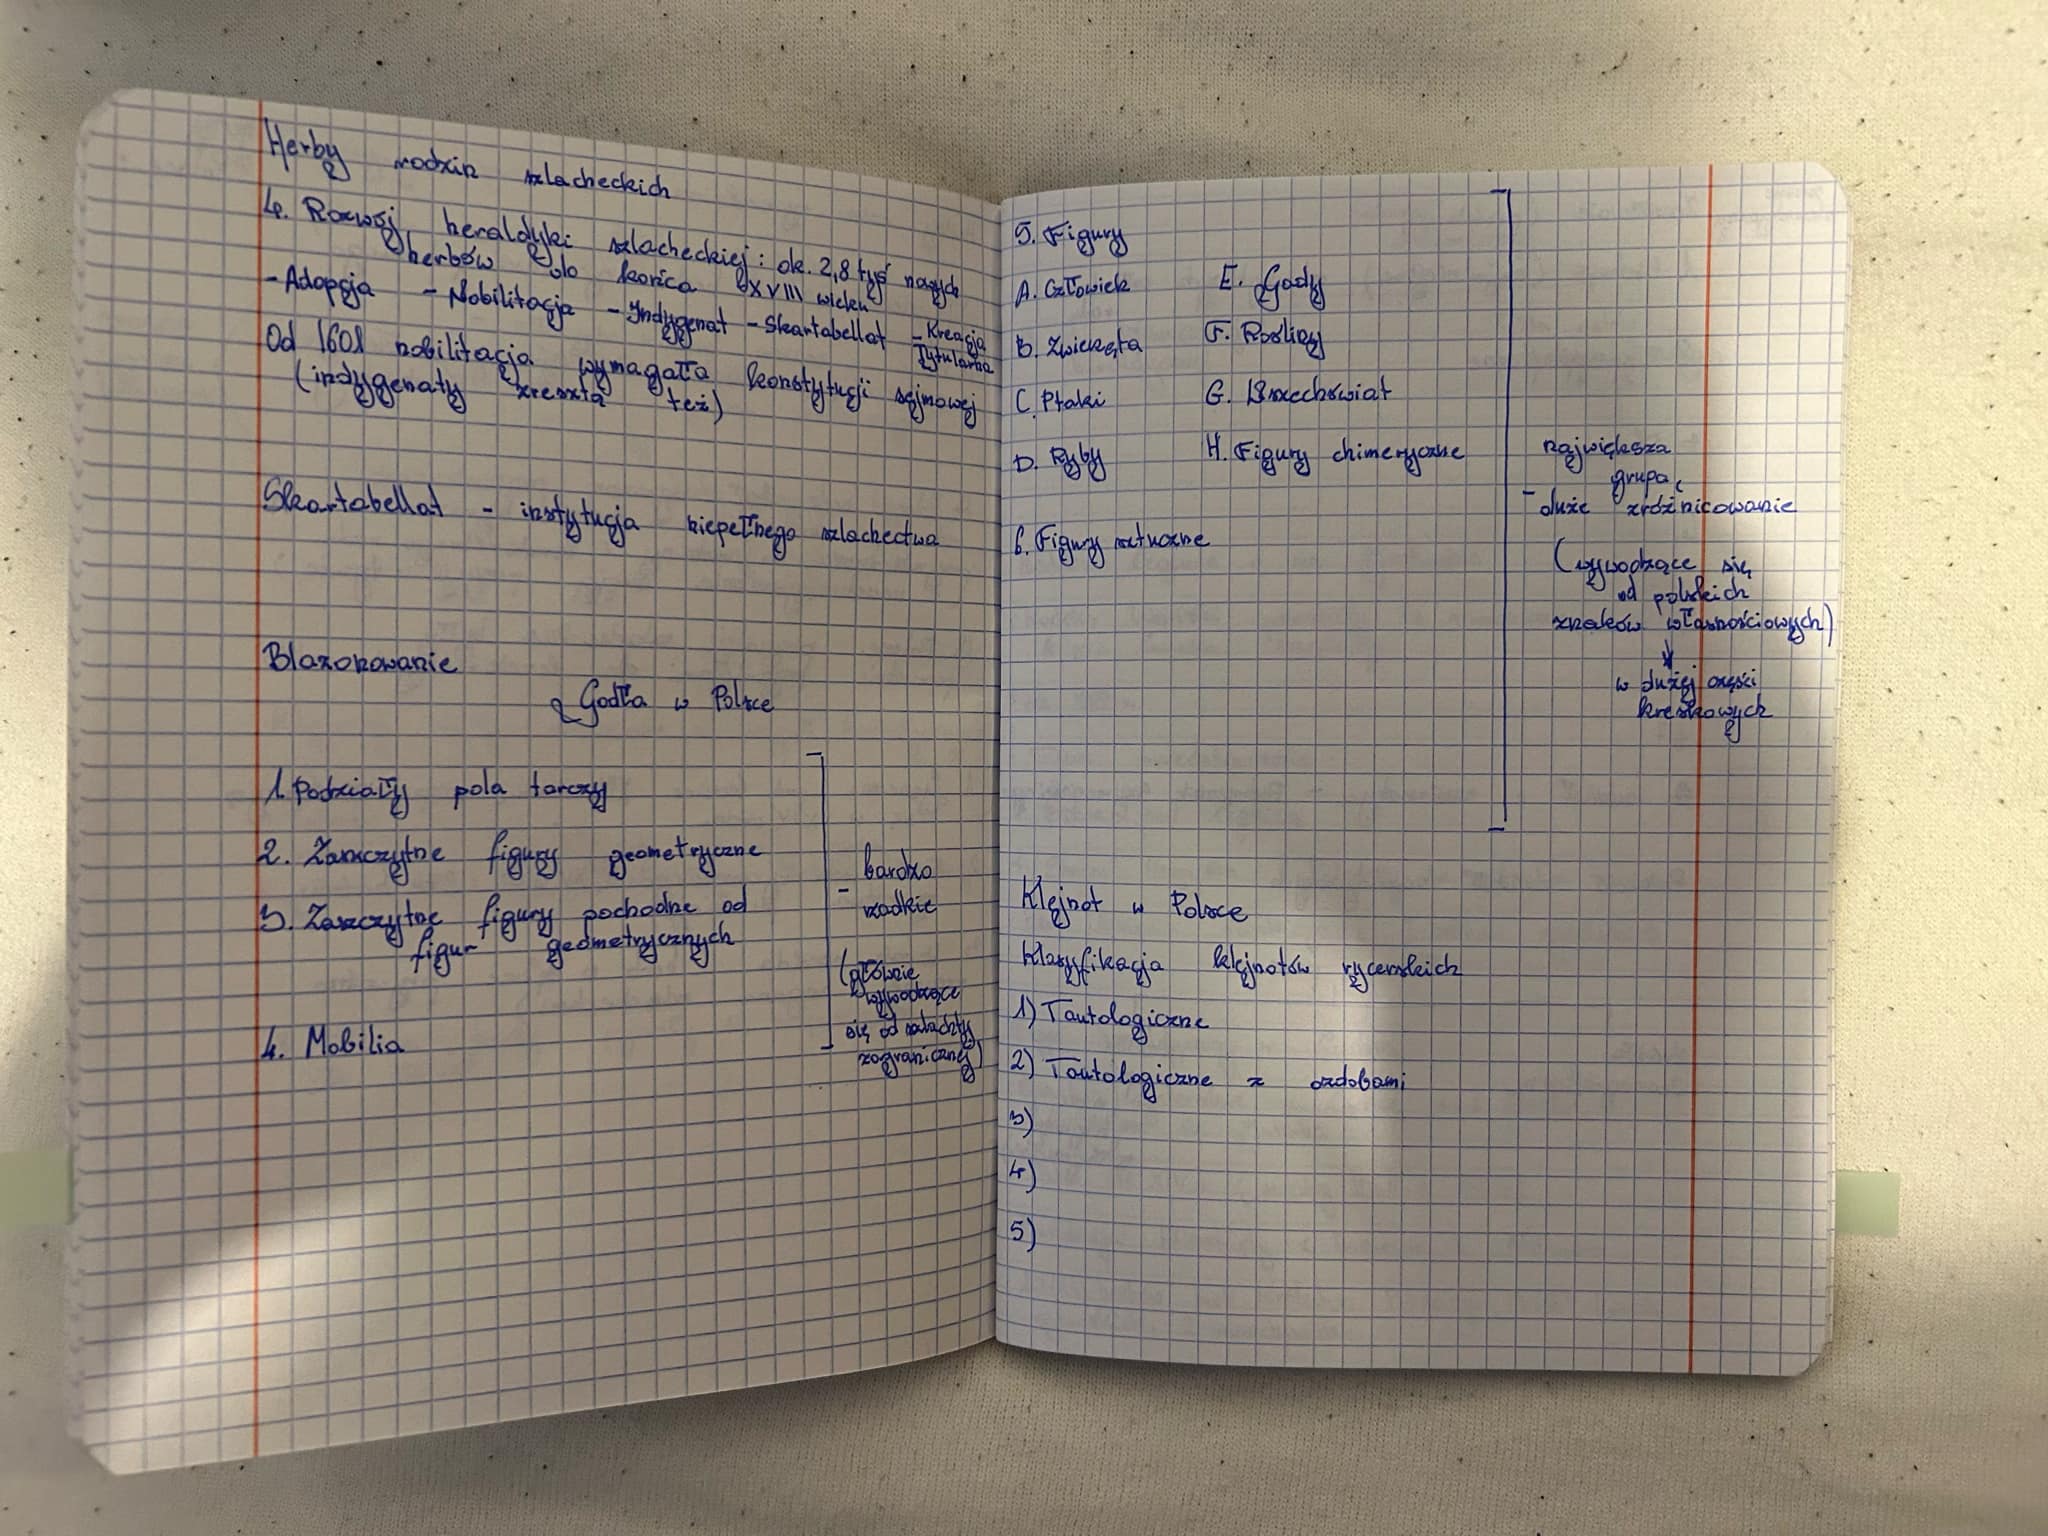 Herby rodzin szlacheckich
4. Rozwój heraldyki szlacheckiej: ok. 2,8 tyś nowych
herbów do końca XVIII wieku
- Adopcja - Nobilitacja - Indygenat - Skartabellat - Kreacja
Tytularna
Od 1601 nobilitacja wymagała konstytucji sejmowej
(indygenaty zresztą też)
Skartabellat - instytucja niepełnego szlachectwa
Blazonowanie
Godła w Polsce
1. Podziały pola tarczy
2. Zaszczytne figury geometryczne
3. Zaszczytne figury pochodne od
figur geometrycznych
4. Mobilia
bardzo
- rzadkie
(głównie
wywodzące
się od szlachty
zagranicznej)
5. Figury
A. Człowiek
B. Zwierzęta
C. Ptaki
D. Ryby
E. Gady
F. Rośliny
G. Wszechświat
H. Figury chimeryczne
6. Figury sztuczne
największa
grupa,
- duże zróżnicowanie
(wywodzące się
od polskich
znaków własnościowych)
w dużej części
kreskowych
Klejnot w Polsce
Klasyfikacja klejnotów rycerskich
1) Tautologiczne
2) Tautologiczne z ozdobami
3)
4)
5)